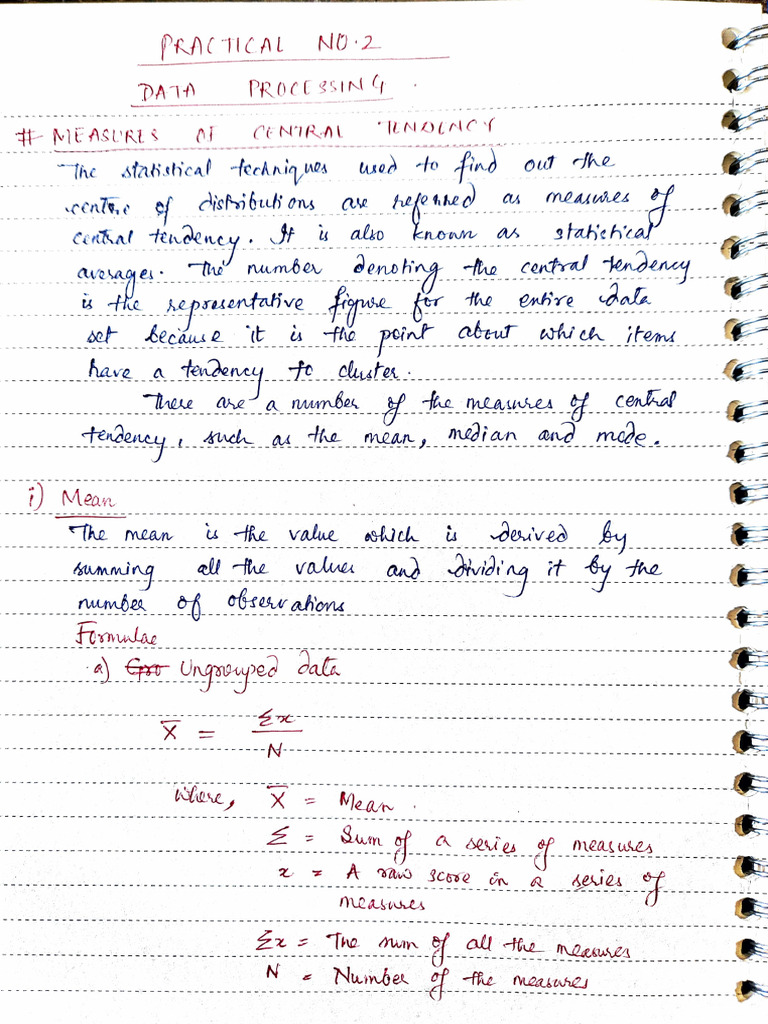 PRACTICAL NO.2
DATA PROCESSING.
# MEASURES OF CENTRAL TENDENCY
The statistical techniques used to find out the
centre of distributions are referred as measures of
central tendency. It is also known as statistical
averages. The number denoting the central tendency
is the representative figure for the entire data
set because it is the point about which items
have a tendency to cluster.
There are a number of the measures of central
tendency, such as the mean, median and mode.
i) Mean
The mean is the value which is derived by
summing all the values and dividing it by the
number of observations
Formulae
a) Gro Ungrouped data
X̅ = Σx
N
where, X̅ = Mean.
Σ = Sum of a series of measures
x = A raw score in a series of
measures
Σx = The sum of all the measures
N = Number of the measures